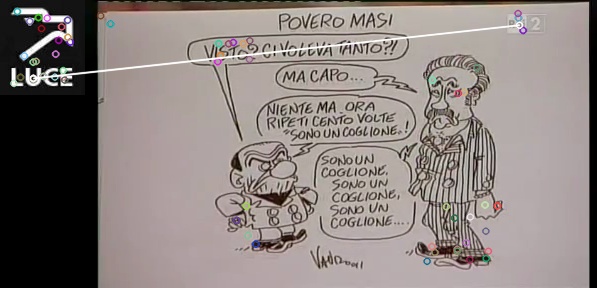 POVERO MASI
VISTO? CI VOLEVA TANTO?!
MA CAPO...
NIENTE MA. ORA
RIPETI CENTO VOLTE
"SONO UN COGLIONE"!
SONO UN
COGLIONE,
SONO UN
COGLIONE,
SONO UN
COGLIONE....
LUCE
2